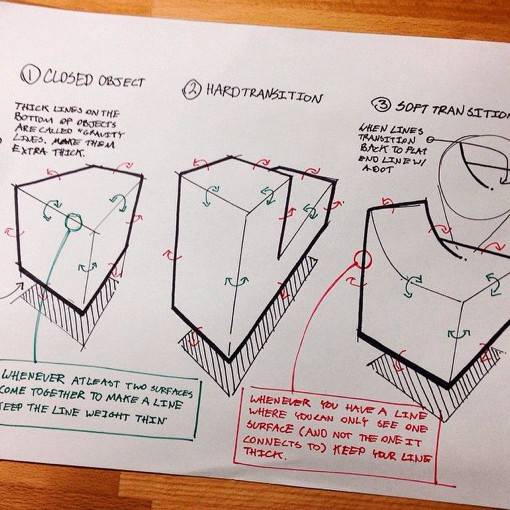 ① CLOSED OBJECT
THICK LINES ON THE
BOTTOM OF OBJECTS
ARE CALLED "GRAVITY
LINES. MAKE THEM
EXTRA THICK.
② HARD TRANSITION
③ SOFT TRANSITION
WHEN LINES
TRANSITION
BACK TO FLAT
END LINE W/
A DOT
WHENEVER ATLEAST TWO SURFACES
COME TOGETHER TO MAKE A LINE
KEEP THE LINE WEIGHT THIN
WHENEVER YOU HAVE A LINE
WHERE YOU CAN ONLY SEE ONE
SURFACE (AND NOT THE ONE IT
CONNECTS TO) KEEP YOUR LINE
THICK.